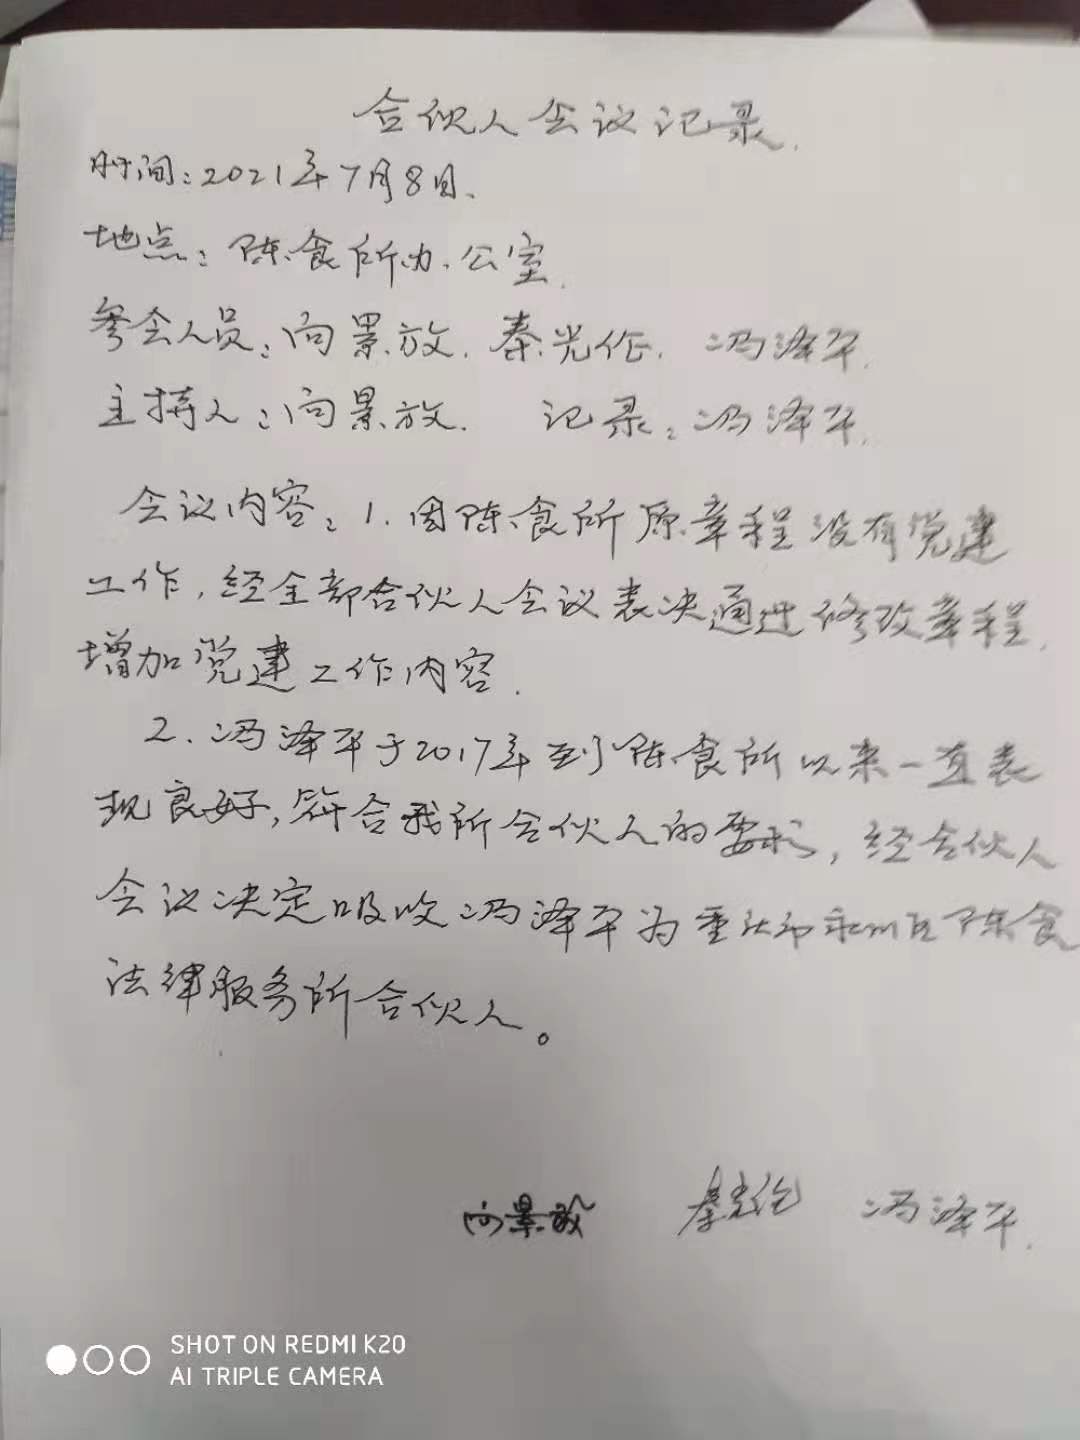 合伙人会议记录.
时间:2021年7月8日.
地点:陈食所办公室.
参会人员:向景放.秦光伦.冯泽平.
主持人:向景放. 记录:冯泽平.
会议内容:1.因陈食所原章程没有党建
工作,经全部合伙人会议表决通过修改章程,
增加党建工作内容.
2.冯泽平于2017年到陈食所以来一直表
现良好,符合我所合伙人的要求,经合伙人
会议决定吸收冯泽平为重庆市永川区陈食
法律服务所合伙人。
向景放 秦光伦 冯泽平.
SHOT ON REDMI K20
AI TRIPLE CAMERA